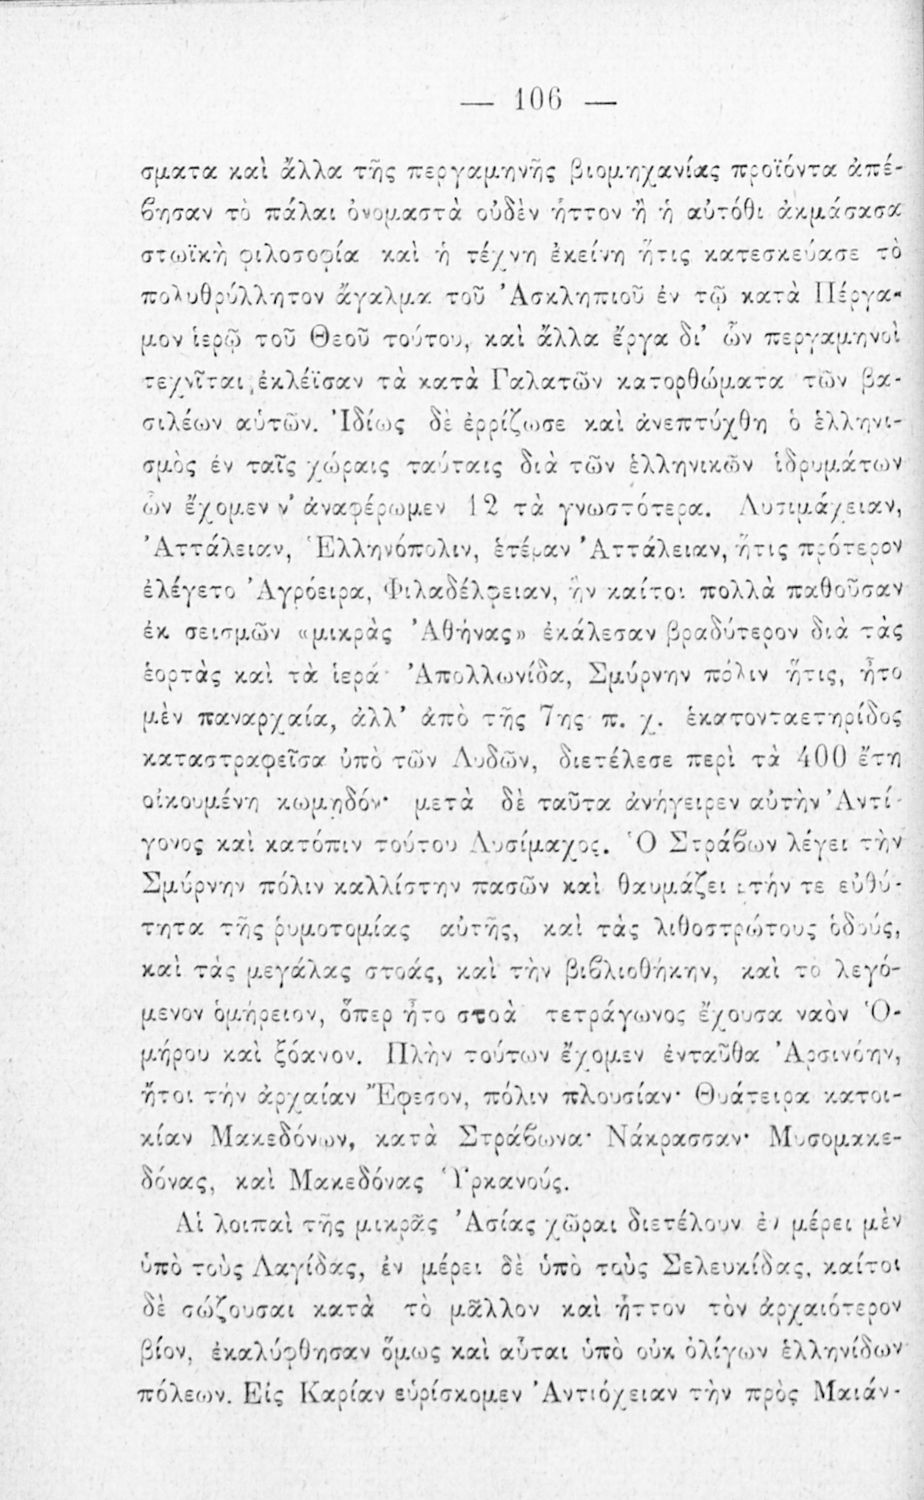 — 106 —
σματα καὶ ἄλλα τῆς περγαμηνῆς βιομηχανίας προϊόντα ἀπέ-
βησαν τὸ πάλαι ὀνομαστὰ οὐδὲν ἧττον ἢ ἡ αὐτόθι ἀκμάσασα
στωϊκὴ φιλοσοφία καὶ ἡ τέχνη ἐκείνη ἥτις κατεσκεύασε τὸ
πολυθρύλλητον ἄγαλμα τοῦ Ἀσκληπιοῦ ἐν τῷ κατὰ Πέργα-
μον ἱερῷ τοῦ Θεοῦ τούτου, καὶ ἄλλα ἔργα δι’ ὧν περγαμηνοὶ
τεχνῖται ἐκλέϊσαν τὰ κατὰ Γαλατῶν κατορθώματα τῶν βα-
σιλέων αὑτῶν. Ἰδίως δὲ ἐρρίζωσε καὶ ἀνεπτύχθη ὁ ἑλληνι-
σμὸς ἐν ταῖς χώραις ταύταις διὰ τῶν ἑλληνικῶν ἱδρυμάτων
ὧν ἔχομεν ν’ ἀναφέρωμεν 12 τὰ γνωστότερα. Λυσιμάχειαν,
Ἀττάλειαν, Ἑλληνόπολιν, ἑτέραν Ἀττάλειαν, ἥτις πρότερον
ἐλέγετο Ἀγρόειρα, Φιλαδέλφειαν, ἣν καίτοι πολλὰ παθοῦσαν
ἐκ σεισμῶν «μικρὰς Ἀθήνας» ἐκάλεσαν βραδύτερον διὰ τὰς
ἑορτὰς καὶ τὰ ἱερά· Ἀπολλωνίδα, Σμύρνην πόλιν ἥτις, ἦτο
μὲν παναρχαία, ἀλλ’ ἀπὸ τῆς 7ης π. χ. ἑκατονταετηρίδος
καταστραφεῖσα ὑπὸ τῶν Λυδῶν, διετέλεσε περὶ τὰ 400 ἔτη
οἰκουμένη κωμηδόν· μετὰ δὲ ταῦτα ἀνήγειρεν αὐτὴν Ἀντί-
γονος καὶ κατόπιν τούτου Λυσίμαχος. Ὁ Στράβων λέγει τὴν
Σμύρνην πόλιν καλλίστην πασῶν καὶ θαυμάζει τήν τε εὐθύ-
τητα τῆς ῥυμοτομίας αὐτῆς, καὶ τὰς λιθοστρώτους ὁδούς,
καὶ τὰς μεγάλας στοάς, καὶ τὴν βιβλιοθήκην, καὶ τὸ λεγό-
μενον ὁμήρειον, ὅπερ ἦτο στοὰ τετράγωνος ἔχουσα ναὸν Ὁ-
μήρου καὶ ξόανον. Πλὴν τούτων ἔχομεν ἐνταῦθα Ἀρσινόην,
ἤτοι τὴν ἀρχαίαν Ἔφεσον, πόλιν πλουσίαν· Θυάτειρα κατοι-
κίαν Μακεδόνων, κατὰ Στράβωνα· Νάκρασσαν· Μυσομακε-
δόνας, καὶ Μακεδόνας Ὑρκανούς.
Αἱ λοιπαὶ τῆς μικρᾶς Ἀσίας χῶραι διετέλουν ἐν μέρει μὲν
ὑπὸ τοὺς Λαγίδας, ἐν μέρει δὲ ὑπὸ τοὺς Σελευκίδας, καίτοι
δὲ σώζουσαι κατὰ τὸ μᾶλλον καὶ ἧττον τὸν ἀρχαιότερον
βίον, ἐκαλύφθησαν ὅμως καὶ αὗται ὑπὸ οὐκ ὀλίγων ἑλληνίδων
πόλεων. Εἰς Καρίαν εὑρίσκομεν Ἀντιόχειαν τὴν πρὸς Μαιάν-